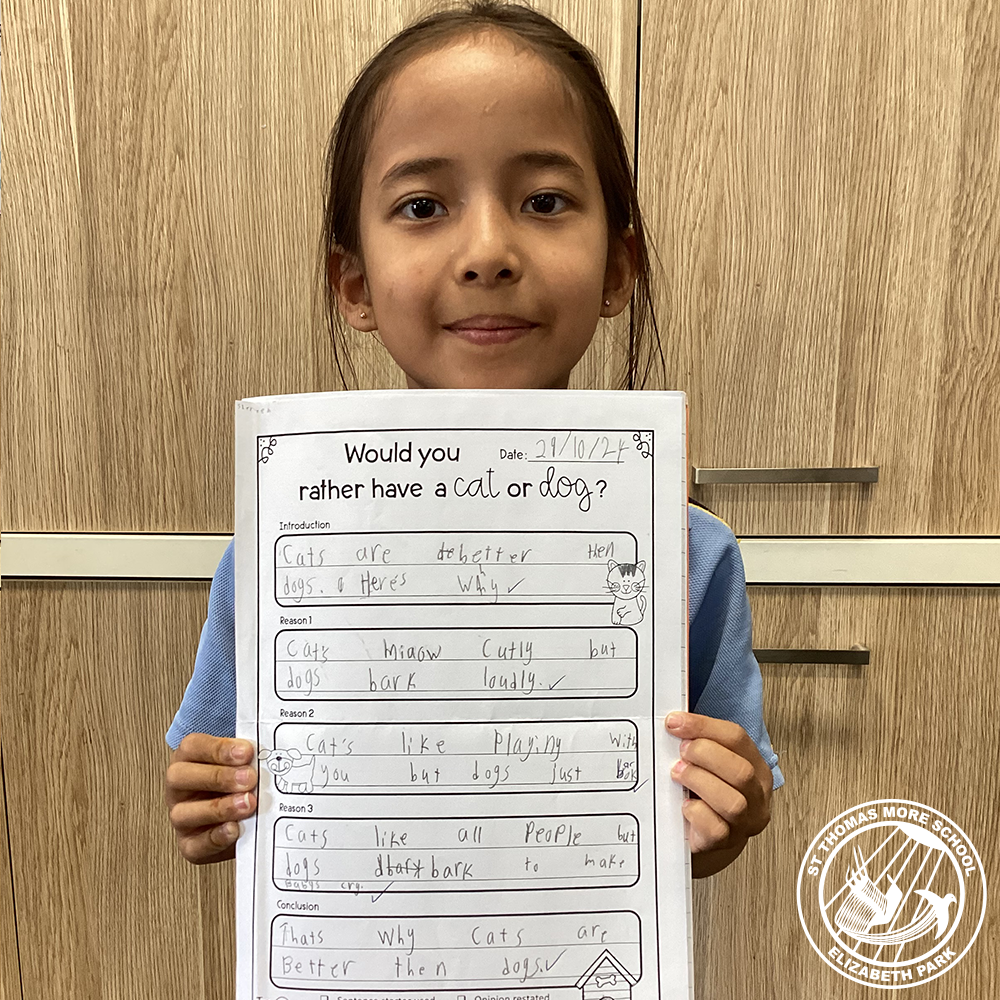 Would you
Date: 29/10/24
rather have a cat or dog?
Introduction
Cats are better then
dogs. Here's why
Reason 1
Cats miaow Cutly but
dogs bark loudly.
Reason 2
Cat's like Playing With
you but dogs just bark
Reason 3
Cats like all People but
dogs bark to make
Babys cry.
Conclusion
Thats Why Cats are
Better then dogs.
Sentence starters used
Opinion restated
ST THOMAS MORE SCHOOL
ELIZABETH PARK